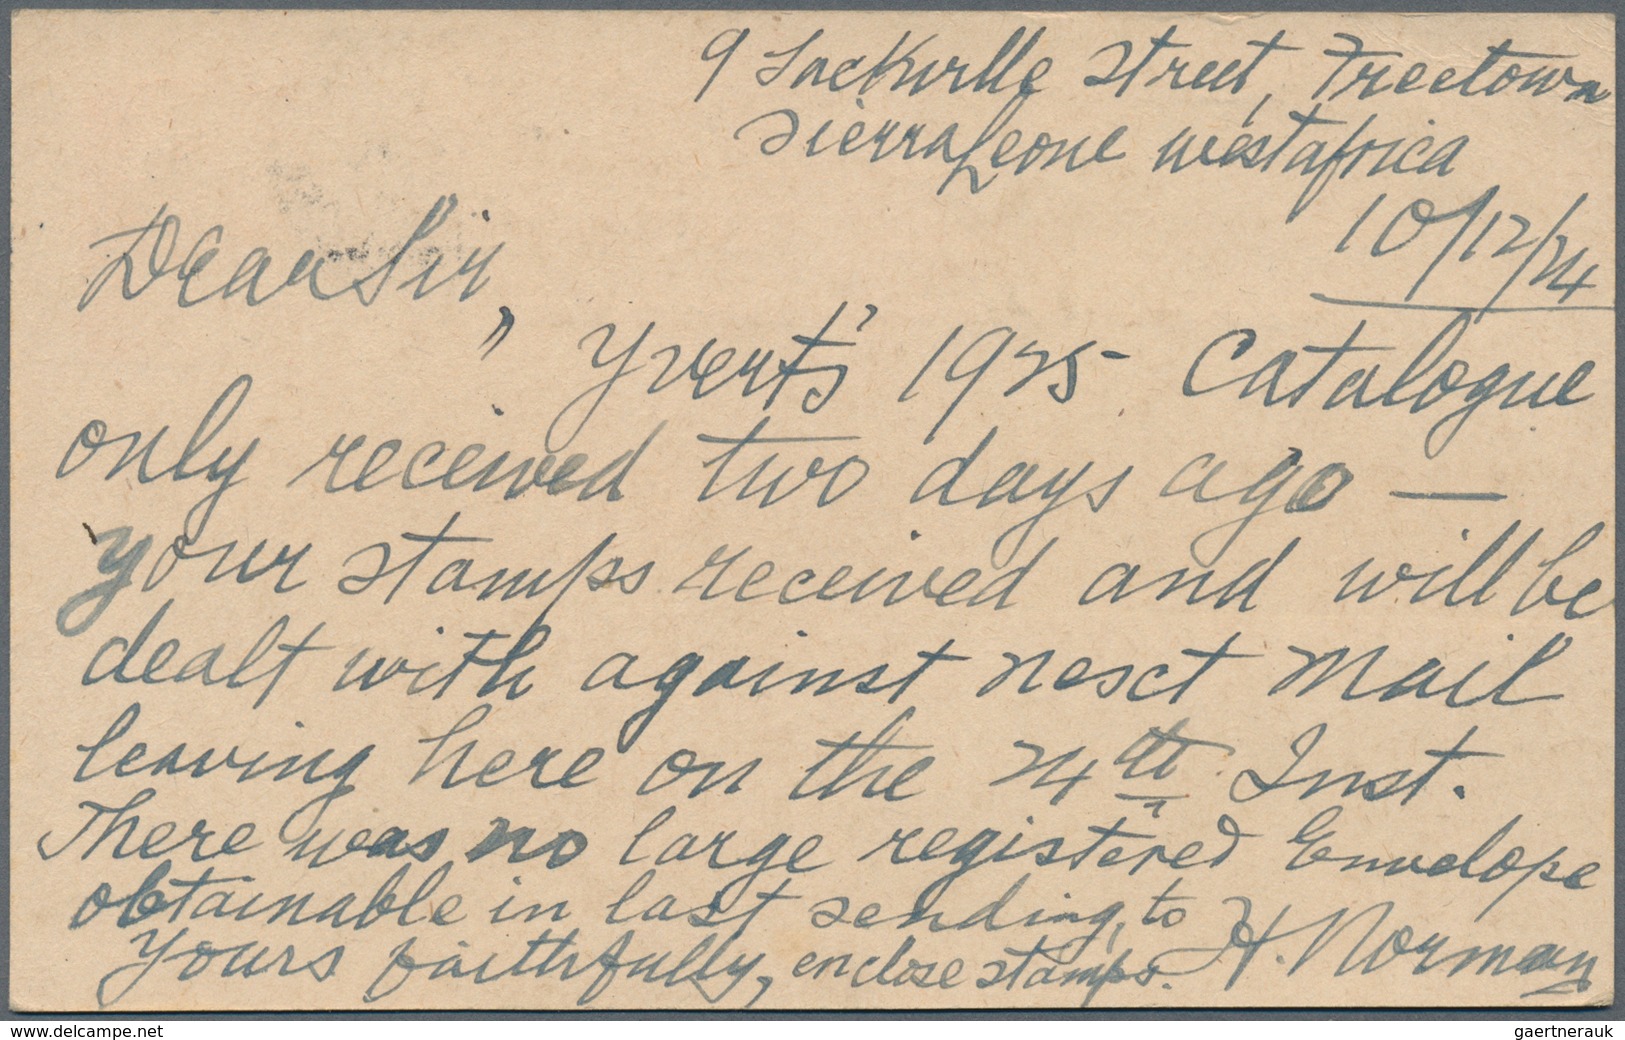 9 Sackville Street, Freetown
Sierra Leone West Africa
10/12/24
Dear Sir,
" Yvert's" 1925 Catalogue
only received two days ago —
your stamps received and will be
dealt with against next Mail
leaving here on the 24th Inst.
There was no large registered Envelope
obtainable in last sending, to
enclose stamps.
Yours faithfully,
H. Norman
delcampe.net
gaertnerauk